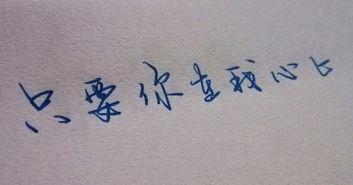 只要你在我心上